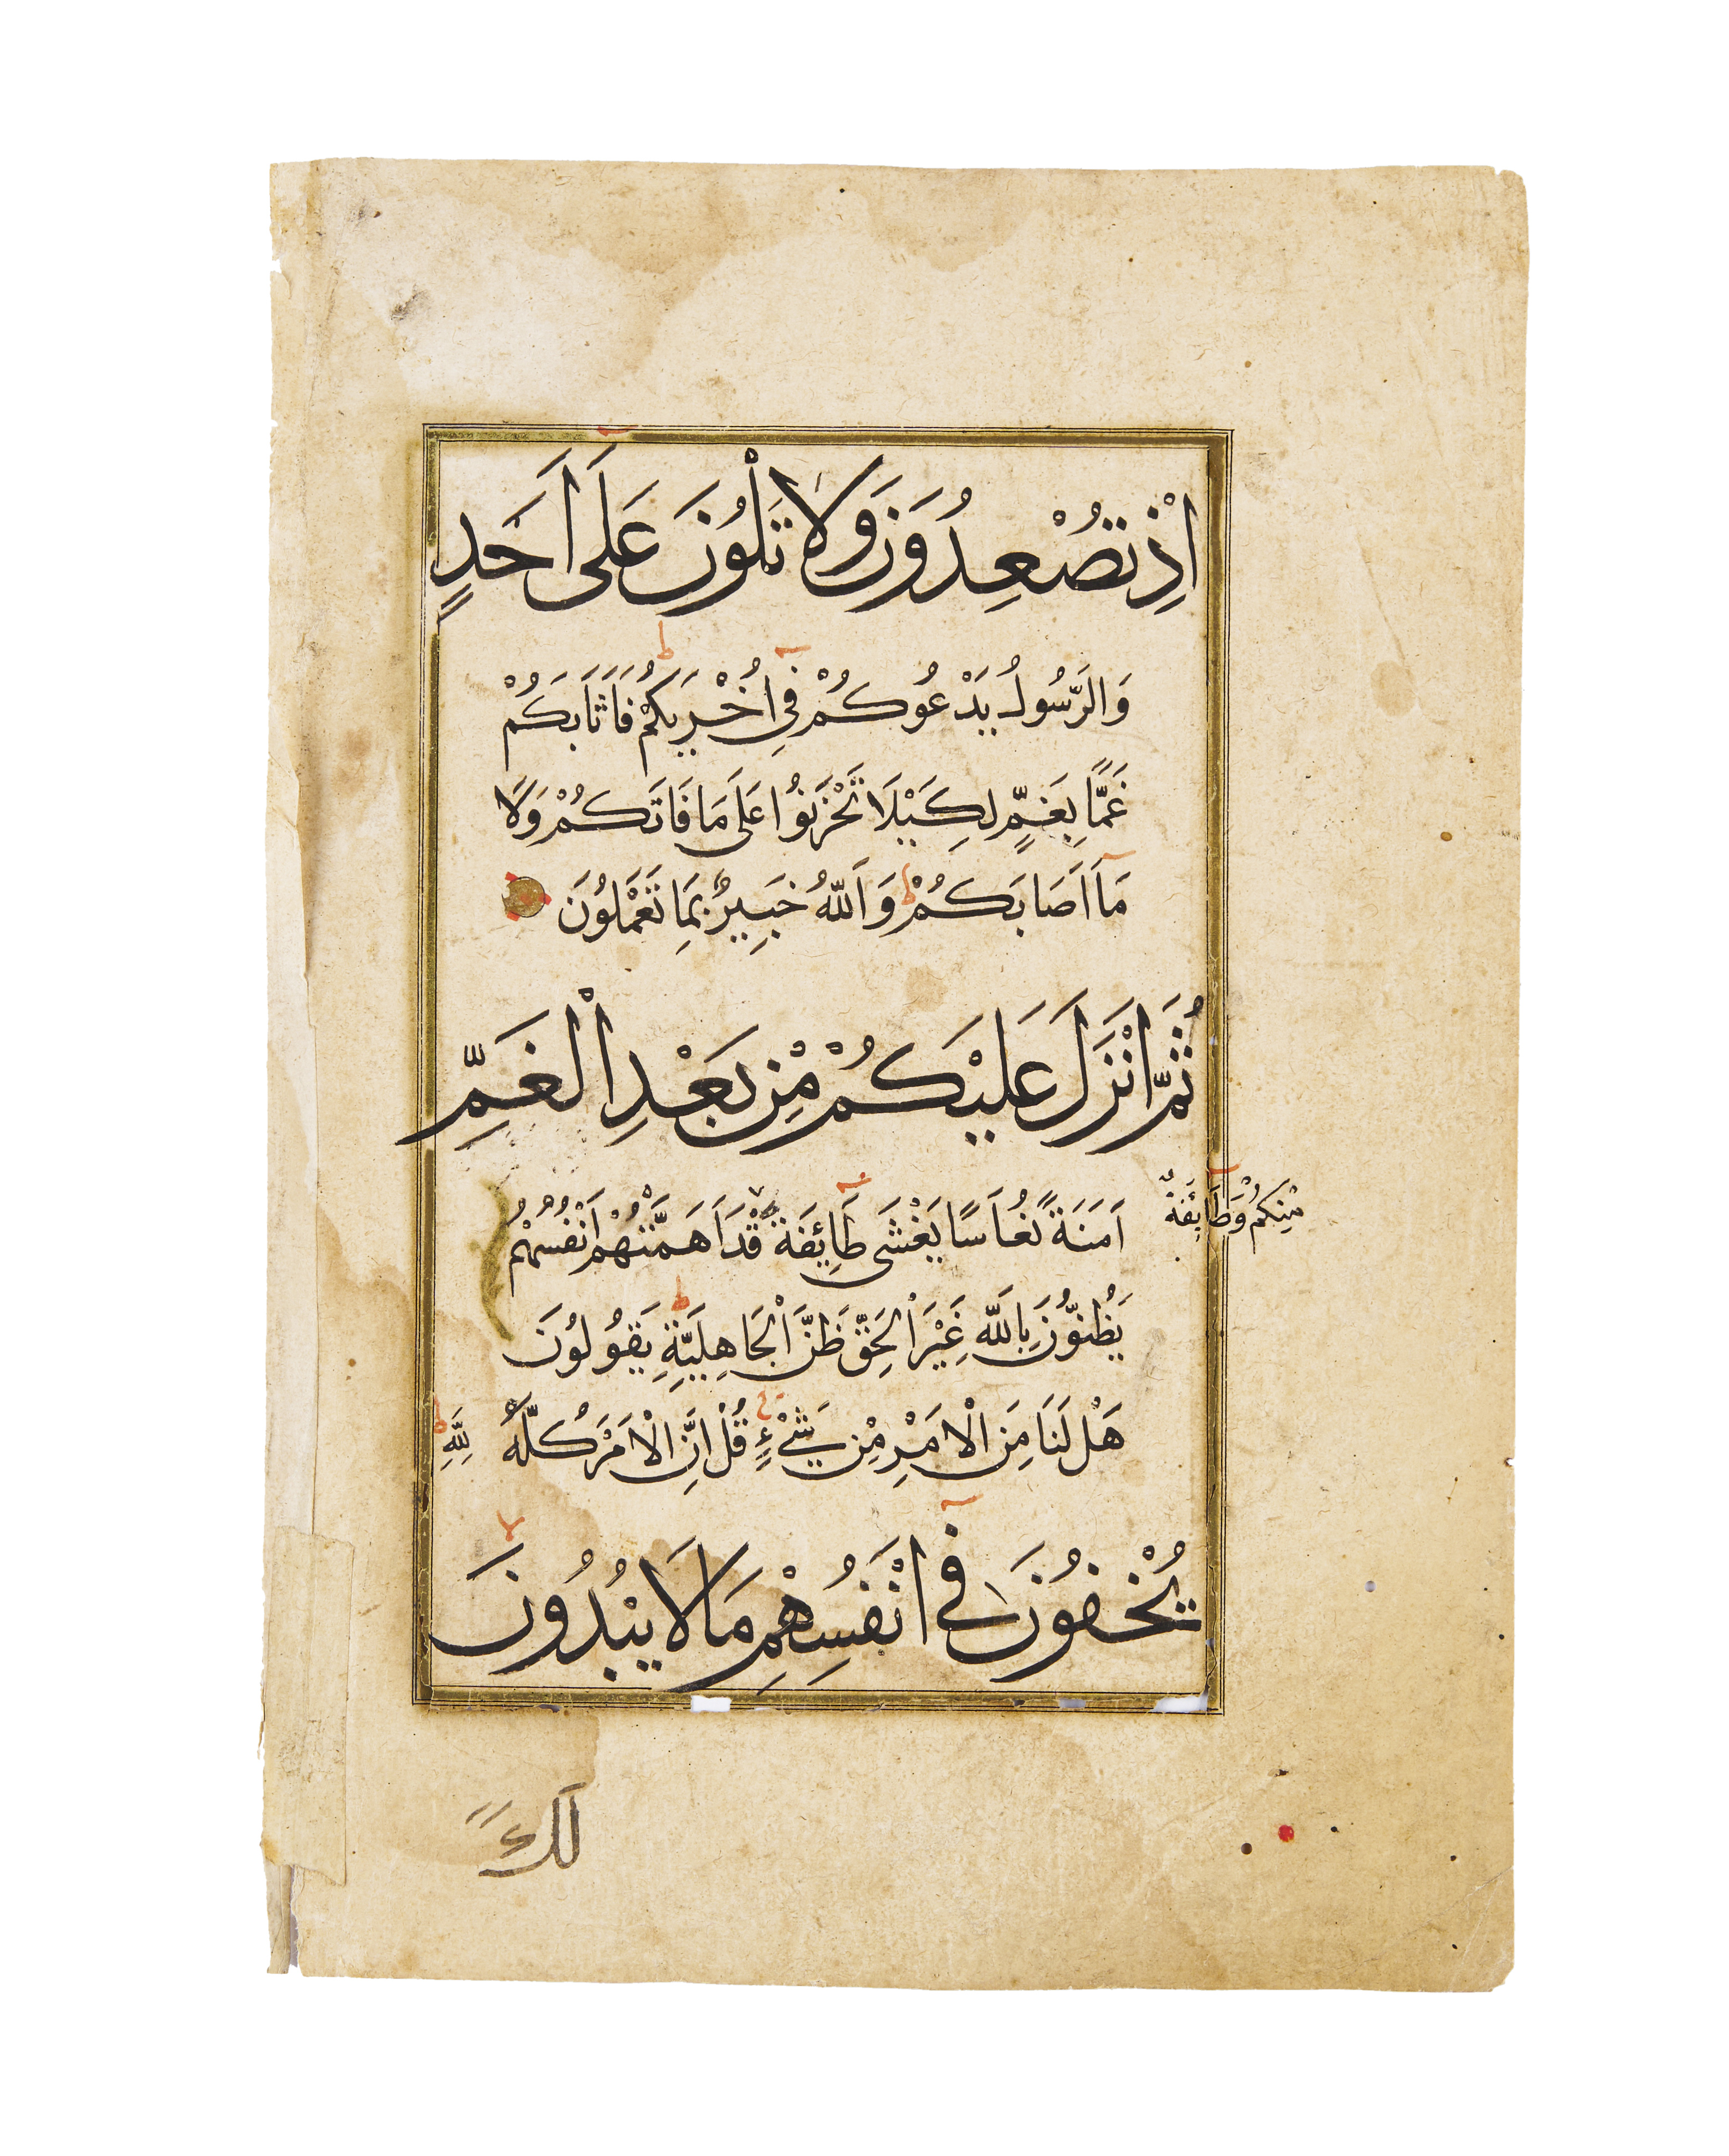 اِذْ تُصْعِدُونَ وَلَا تَلْوُنَ عَلَى اَحَدٍ
وَالرَّسُولُ يَدْعُوكُمْ فِي اُخْرٰيكُمْ فَاَثَابَكُمْ
غَمًّا بِغَمٍّ لِكَيْلَا تَحْزَنُوا عَلَى مَا فَاتَكُمْ وَلَا
مَا اَصَابَكُمْ وَاَللّٰهُ خَبِيرٌ بِمَا تَعْمَلُونَ
ثُمَّ اَنْزَلَ عَلَيْكُمْ مِنْ بَعْدِ الْغَمِّ
اَمَنَةً نُعَاسًا يَغْشَى طَائِفَةً قَدْ اَهَمَّتْهُمْ اَنْفُسُهُمْ
مِنْكُمْ وَطَائِفَةٌ
يَظُنُّونَ بِاللّٰهِ غَيْرَ الْحَقِّ ظَنَّ الْجَاهِلِيَّةِ يَقُولُونَ
هَلْ لَنَا مِنَ الْاَمْرِ مِنْ شَيْءٍ قُلْ اِنَّ الْاَمْرَ كُلَّهُ لِلّٰهِ
يُخْفُونَ فِي اَنْفُسِهِمْ مَا لَا يُبْدُونَ
لَكَ